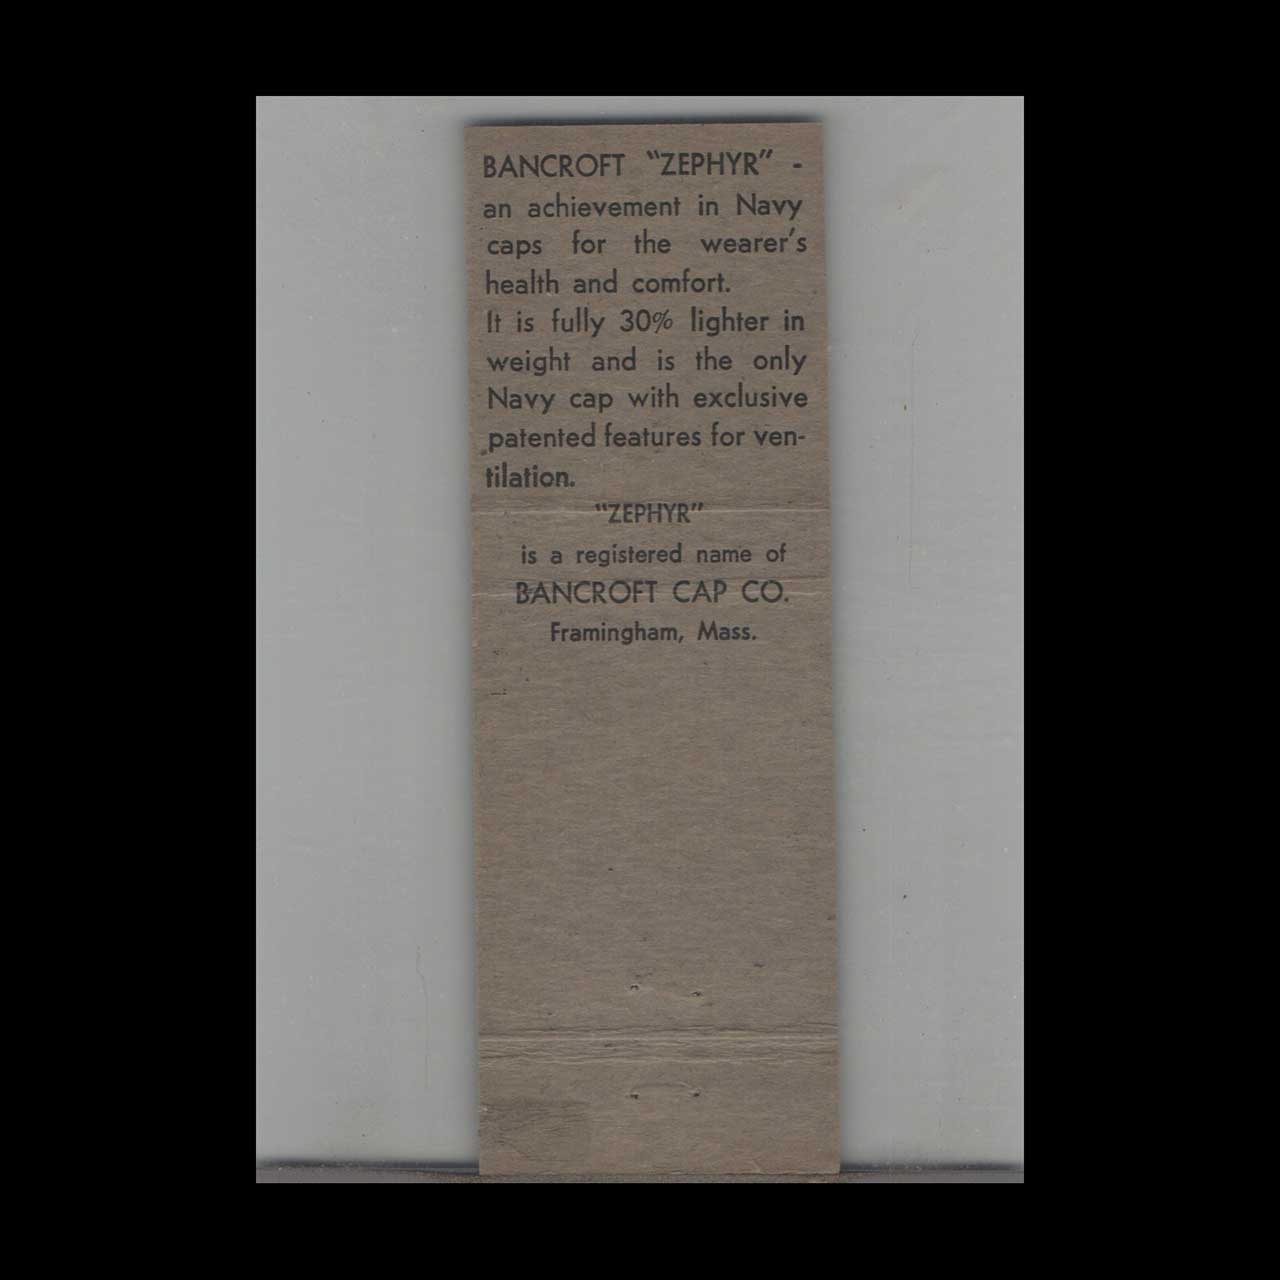 BANCROFT "ZEPHYR" -
an achievement in Navy
caps for the wearer's
health and comfort.
It is fully 30% lighter in
weight and is the only
Navy cap with exclusive
patented features for ven-
tilation.
"ZEPHYR"
is a registered name of
BANCROFT CAP CO.
Framingham, Mass.